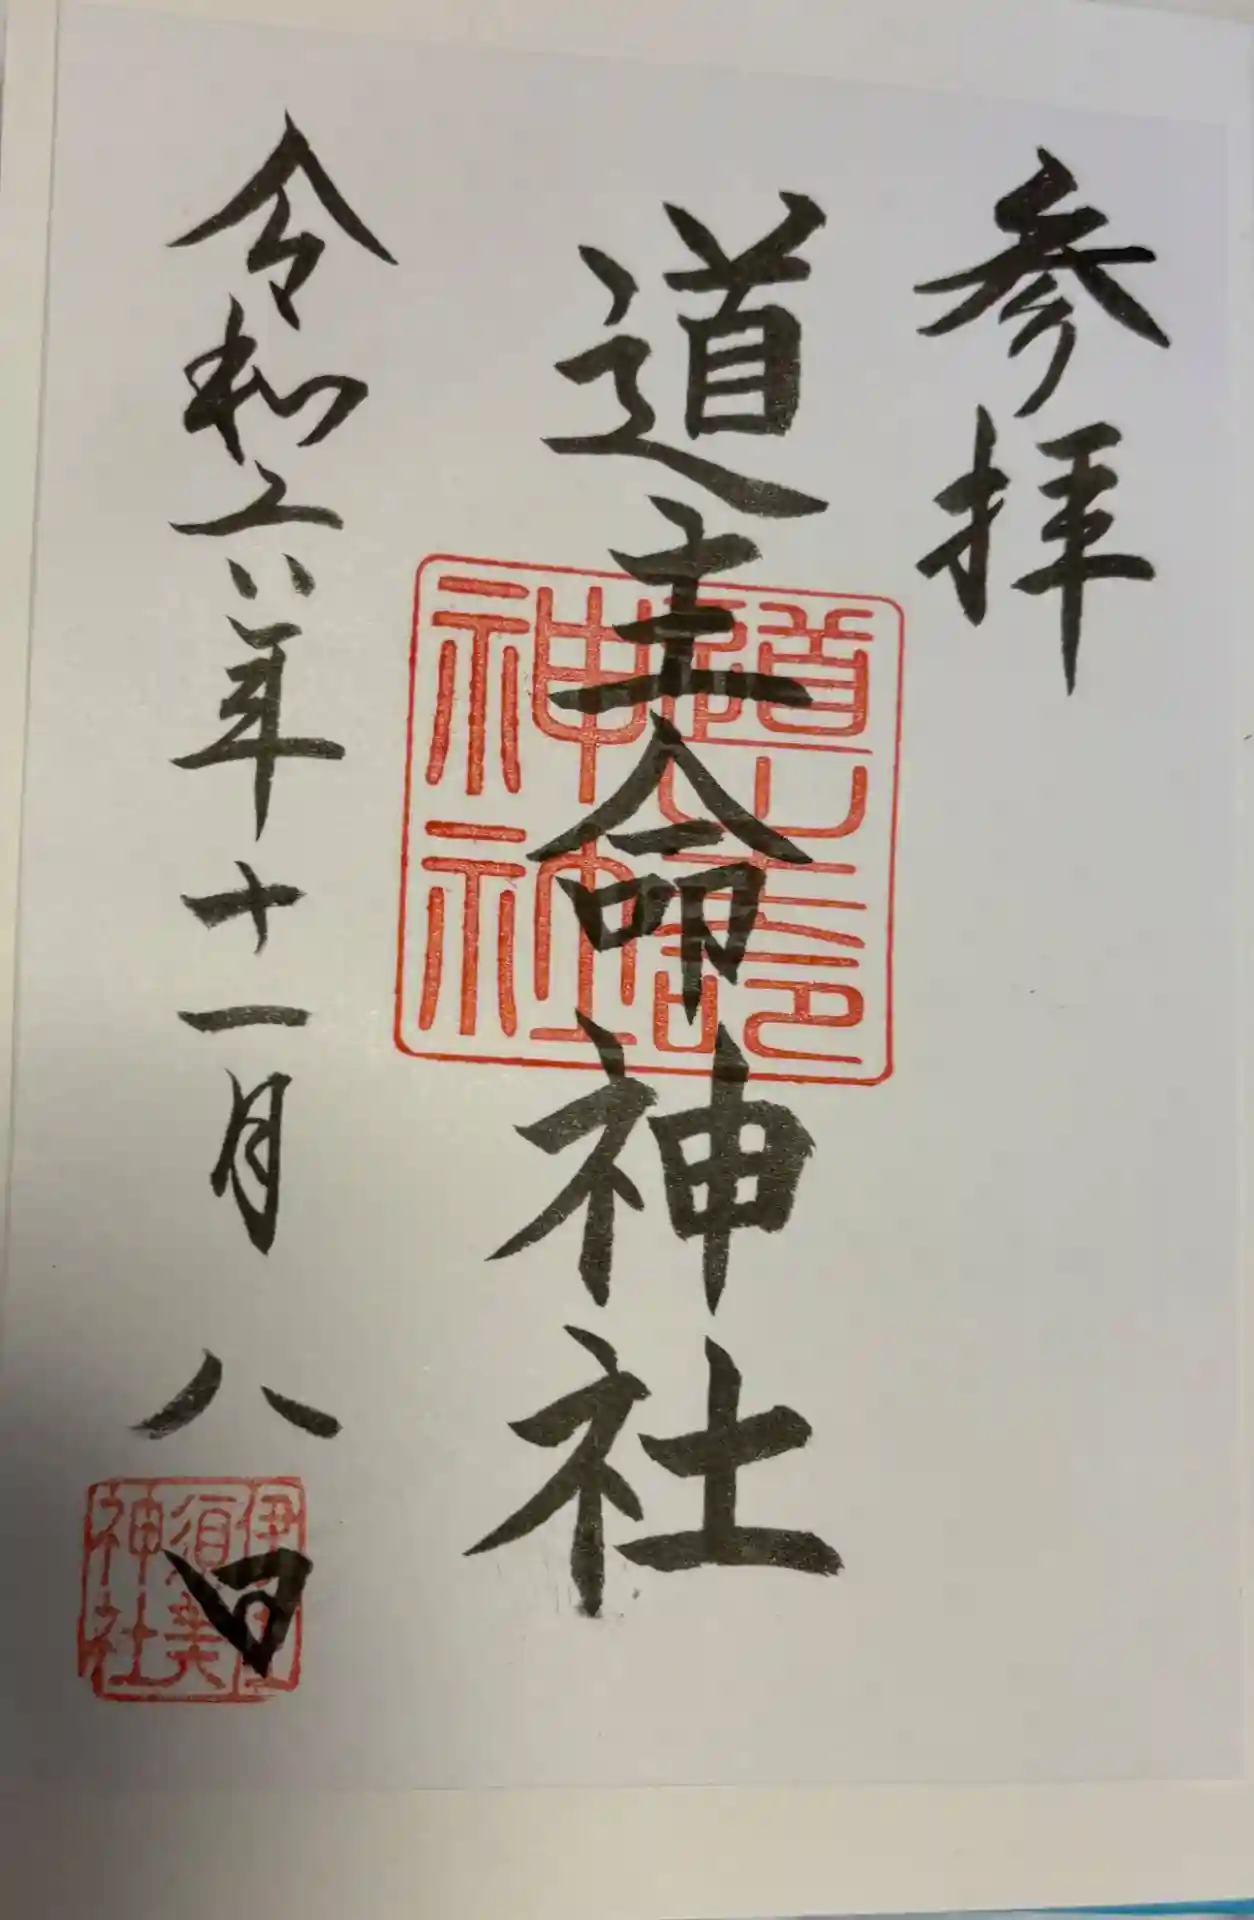 参拝
道主命神社
神社
令和六年十一月八日
伊佐
須美
神社